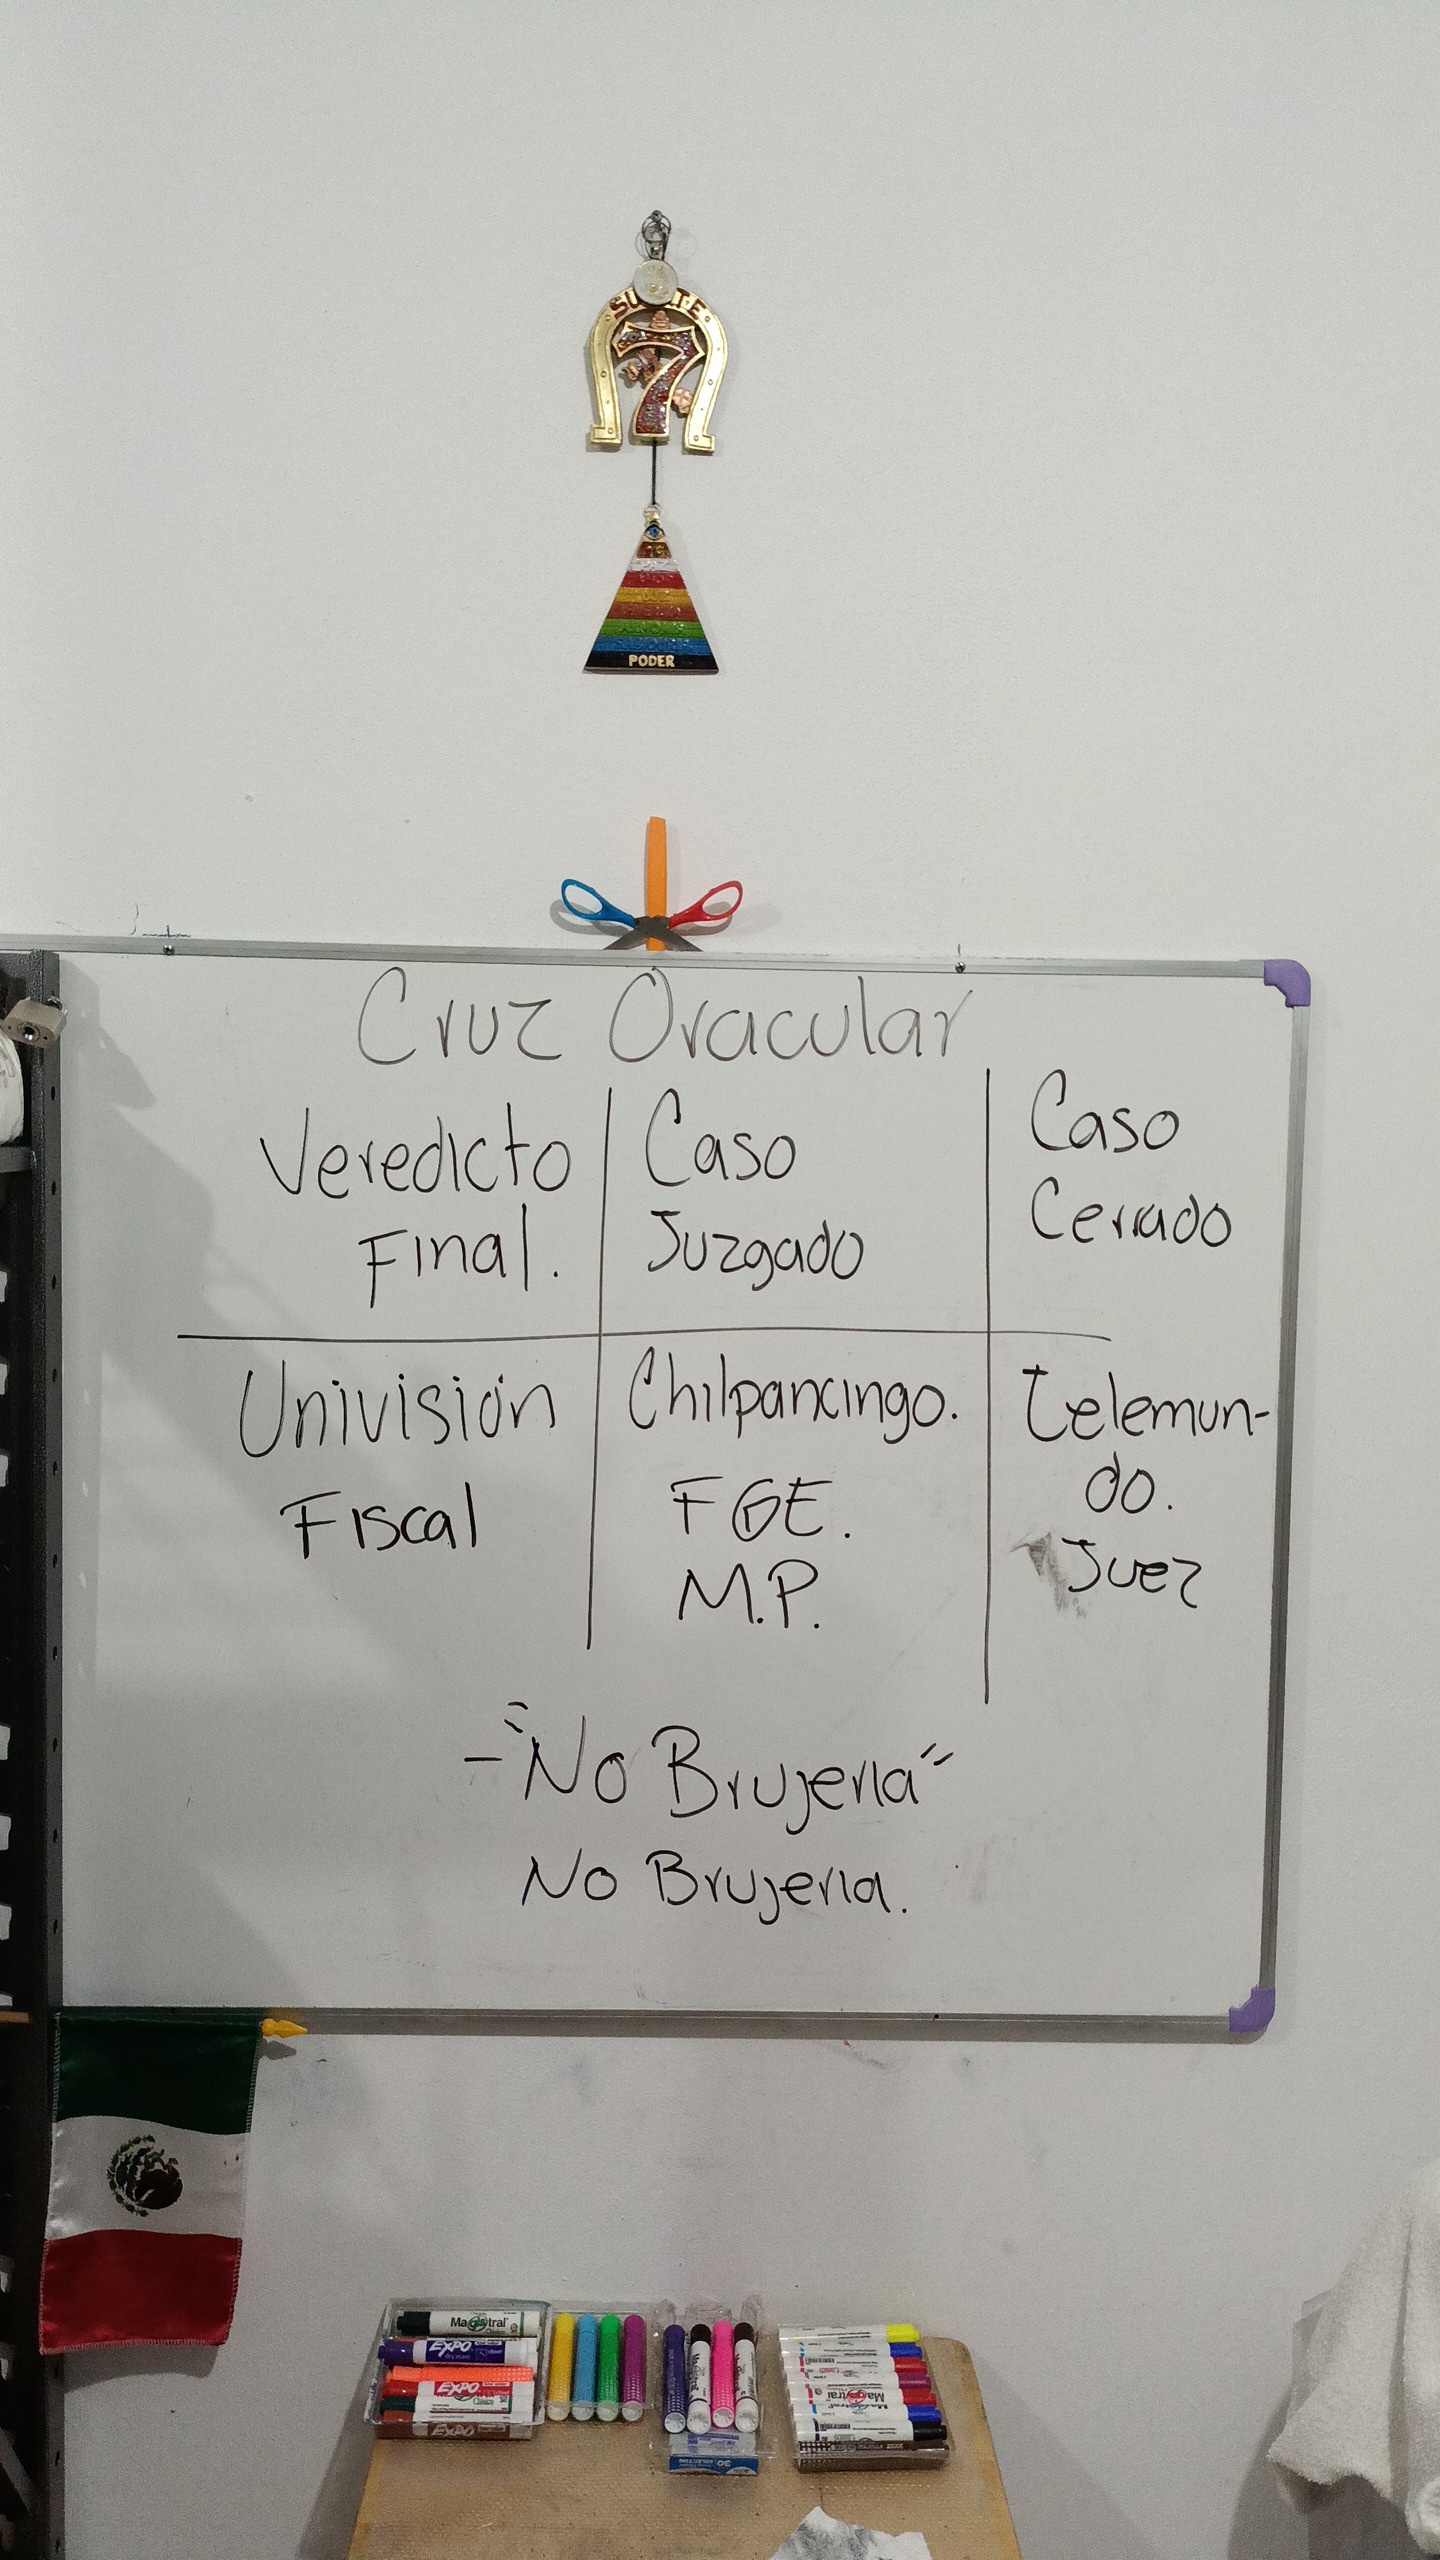 SUERTE
7
PODER
Cruz Oracular
Veredicto
Final.
Caso
Juzgado
Caso
Cerrado
Univisión
Fiscal
Chilpancingo.
FGE.
M.P.
Telemun-
do.
Juez
- "No Brujeria"
No Brujeria.
Magistral
EXPO
EXPO
EXPO
Magistral